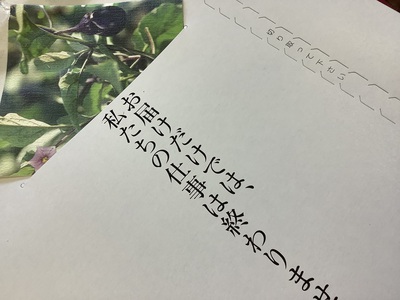 切り取って下さい
お届けだけでは、
私たちの仕事は終わりませ